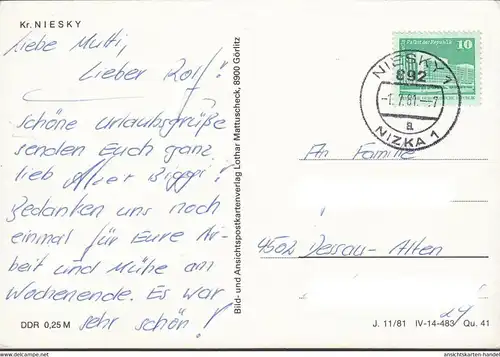 Kr. NIESKY
Liebe Mutti,
Lieber Rolf!
Schöne Urlaubsgrüße
senden Euch ganz
lieb
Bedanken uns noch
einmal für Eure Ar-
beit und Mühe am
Wochenende. Es war
sehr schön!
DDR 0,25 M
Bild- und Ansichtspostkartenverlag Lothar Mattuscheck, 8900 Görlitz
Palast der Republik
10
NIESKY 1
892
-1.7.81.--7
a
NIZKA 1
An Familie
4502 Dessau-Alten
24
J. 11/81 IV-14-483 Qu. 41
ansichtskarten-handel.com